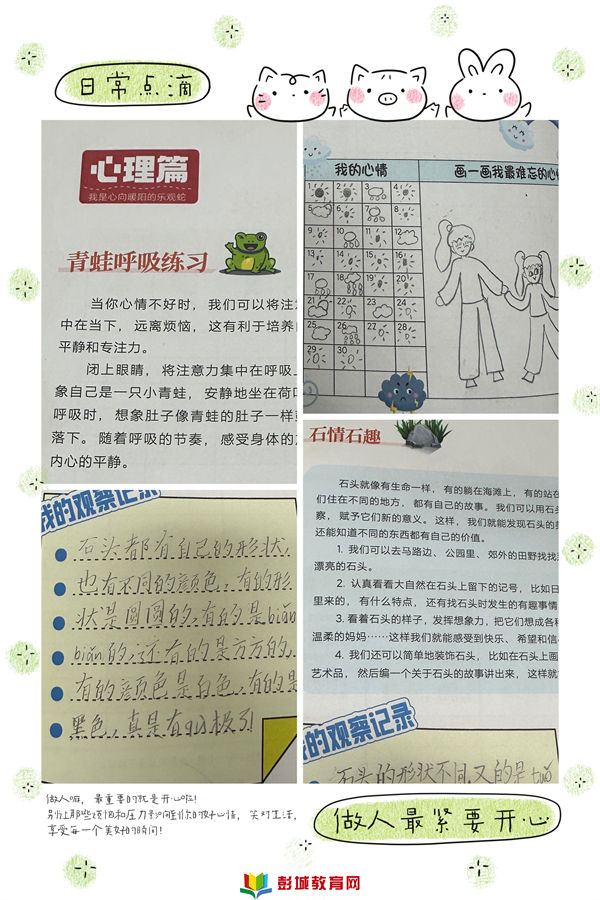 日常点滴
心理篇
我是心向暖阳的乐观蛇
青蛙呼吸练习
当你心情不好时，我们可以将注
中在当下，远离烦恼，这有利于培养
平静和专注力。
闭上眼睛，将注意力集中在呼吸
象自己是一只小青蛙，安静地坐在荷
呼吸时，想象肚子像青蛙的肚子一样
落下。随着呼吸的节奏，感受身体的
内心的平静。
我的心情
画一画我最难忘的心
1 2 3 4
5 6 7 8
9 10 11 12
13 14 15 16
17 18 19 20
21 22 23 24
25 26 27 28
29 30
我的观察记录
石头都有自己的形状，
也有不同的颜色，有的形
状是圆圆的，有的是biǎn
biǎn的，还有的是方方的，
有的颜色是白色，有的是
黑色，真是有的极了！
石情石趣
石头就像有生命一样，有的躺在海滩上，有的站在
们住在不同的地方，都有自己的故事。我们可以用石
察，赋予它们新的意义。这样，我们就能发现石头的
还能知道不同的东西都有自己的价值。
1. 我们可以去马路边、公园里、郊外的田野找找
漂亮的石头。
2. 认真看看大自然在石头上留下的记号，比如
里来的，有什么特点，还有找石头时发生的有趣事情
3. 看着石头的样子，发挥想象力，把它们想成各
温柔的妈妈……这样我们就能感受到快乐、希望和信
4. 我们还可以简单地装饰石头，比如在石头上画
艺术品，然后编一个关于石头的故事讲出来，这样就
的观察记录
石头的形状不同，又的是
做人嘛，最重要的就是开心啦！
别让那些烦恼和压力影响到你的好心情，笑对生活，
享受每一个美好的瞬间！
做人最紧要开心
彭城教育网